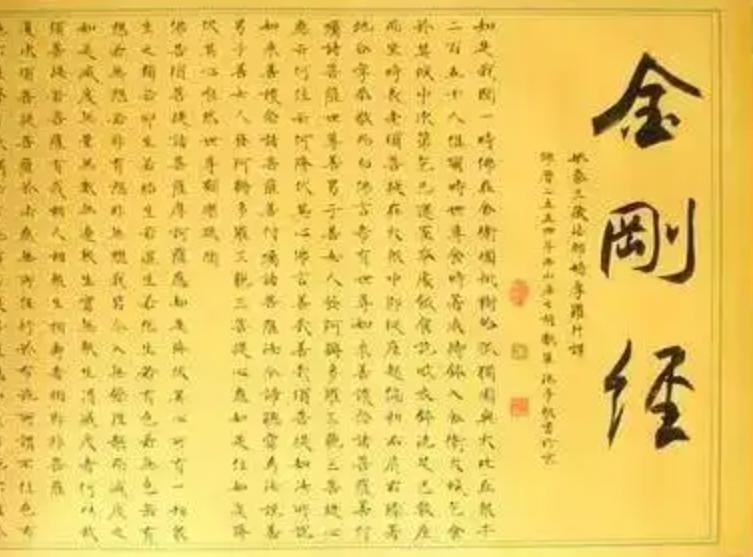 金剛經
姚秦三藏法師鳩摩羅什譯
佛曆二五五四年
如是我聞一時佛在舍衛國祇樹給孤獨園與大比丘眾千
二百五十人俱爾時世尊食時著衣持鉢入舍衛大城乞食
於其城中次第乞已還至本處飯食訖收衣鉢洗足已敷座
而坐時長老須菩提在大眾中即從座起偏袒右肩右膝著
地合掌恭敬而白佛言希有世尊如來善護念諸菩薩善付
囑諸菩薩世尊善男子善女人發阿耨多羅三藐三菩提心
應云何住云何降伏其心佛言善哉善哉須菩提如汝所說
如來善護念諸菩薩善付囑諸菩薩汝今諦聽當為汝說善
男子善女人發阿耨多羅三藐三菩提心應如是住如是降
伏其心唯然世尊願樂欲聞
佛告須菩提諸菩薩摩訶薩應如是降伏其心所有一切眾
生之類若卵生若胎生若濕生若化生若有色若無色若有
想若無想若非有想非無想我皆令入無餘涅槃而滅度之
如是滅度無量無數無邊眾生實無眾生得滅度者何以故
須菩提若菩薩有我相人相眾生相壽者相即非菩薩
復次須菩提菩薩於法應無所住行於布施所謂不住色布